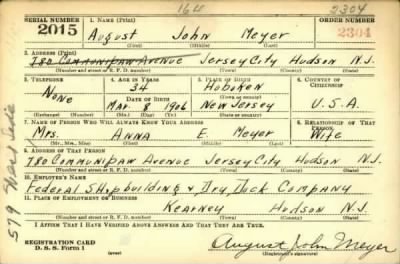 164 2304
SERIAL NUMBER 1. NAME (Print) ORDER NUMBER
2015 August John Meyer 2304
(First) (Middle) (Last)
2. ADDRESS (Print)
780 Communipaw Avenue Jersey City Hudson N.J.
(Number and street or R. F. D. number) (Town) (County) (State)
3. TELEPHONE 4. AGE IN YEARS 5. PLACE OF BIRTH 6. COUNTRY OF CITIZENSHIP
None 34 Hoboken
DATE OF BIRTH (Town or county)
Mar. 8 1906 New Jersey U.S.A.
(Exchange) (Number) (Mo.) (Day) (Yr.) (State or country)
7. NAME OF PERSON WHO WILL ALWAYS KNOW YOUR ADDRESS 8. RELATIONSHIP OF THAT PERSON
Mrs. Anna E. Meyer Wife
(Mr., Mrs., Miss) (First) (Middle) (Last)
9. ADDRESS OF THAT PERSON
780 Communipaw Avenue Jersey City Hudson N.J.
(Number and street or R. F. D. number) (Town) (County) (State)
10. EMPLOYER'S NAME
Federal Shipbuilding & Dry Dock Company
11. PLACE OF EMPLOYMENT OR BUSINESS
Kearney Hudson N.J.
(Number and street or R. F. D. number) (Town) (County) (State)
I AFFIRM THAT I HAVE VERIFIED ABOVE ANSWERS AND THAT THEY ARE TRUE.
REGISTRATION CARD
D. S. S. Form 1 August John Meyer
(Registrant's signature)
579